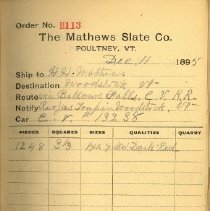 Order No. B113
The Mathews Slate Co.
POULTNEY, VT.
Dec 11 1895
Ship to H. H. Mathews
Destination Woodstock Vt
Route via Bellows Falls, C. V. R.R.
Notify Woodstock, Vt
Car C. V. # 13238
PIECES SQUARES SIZES QUALITIES QUARRY
1248 3 1/3